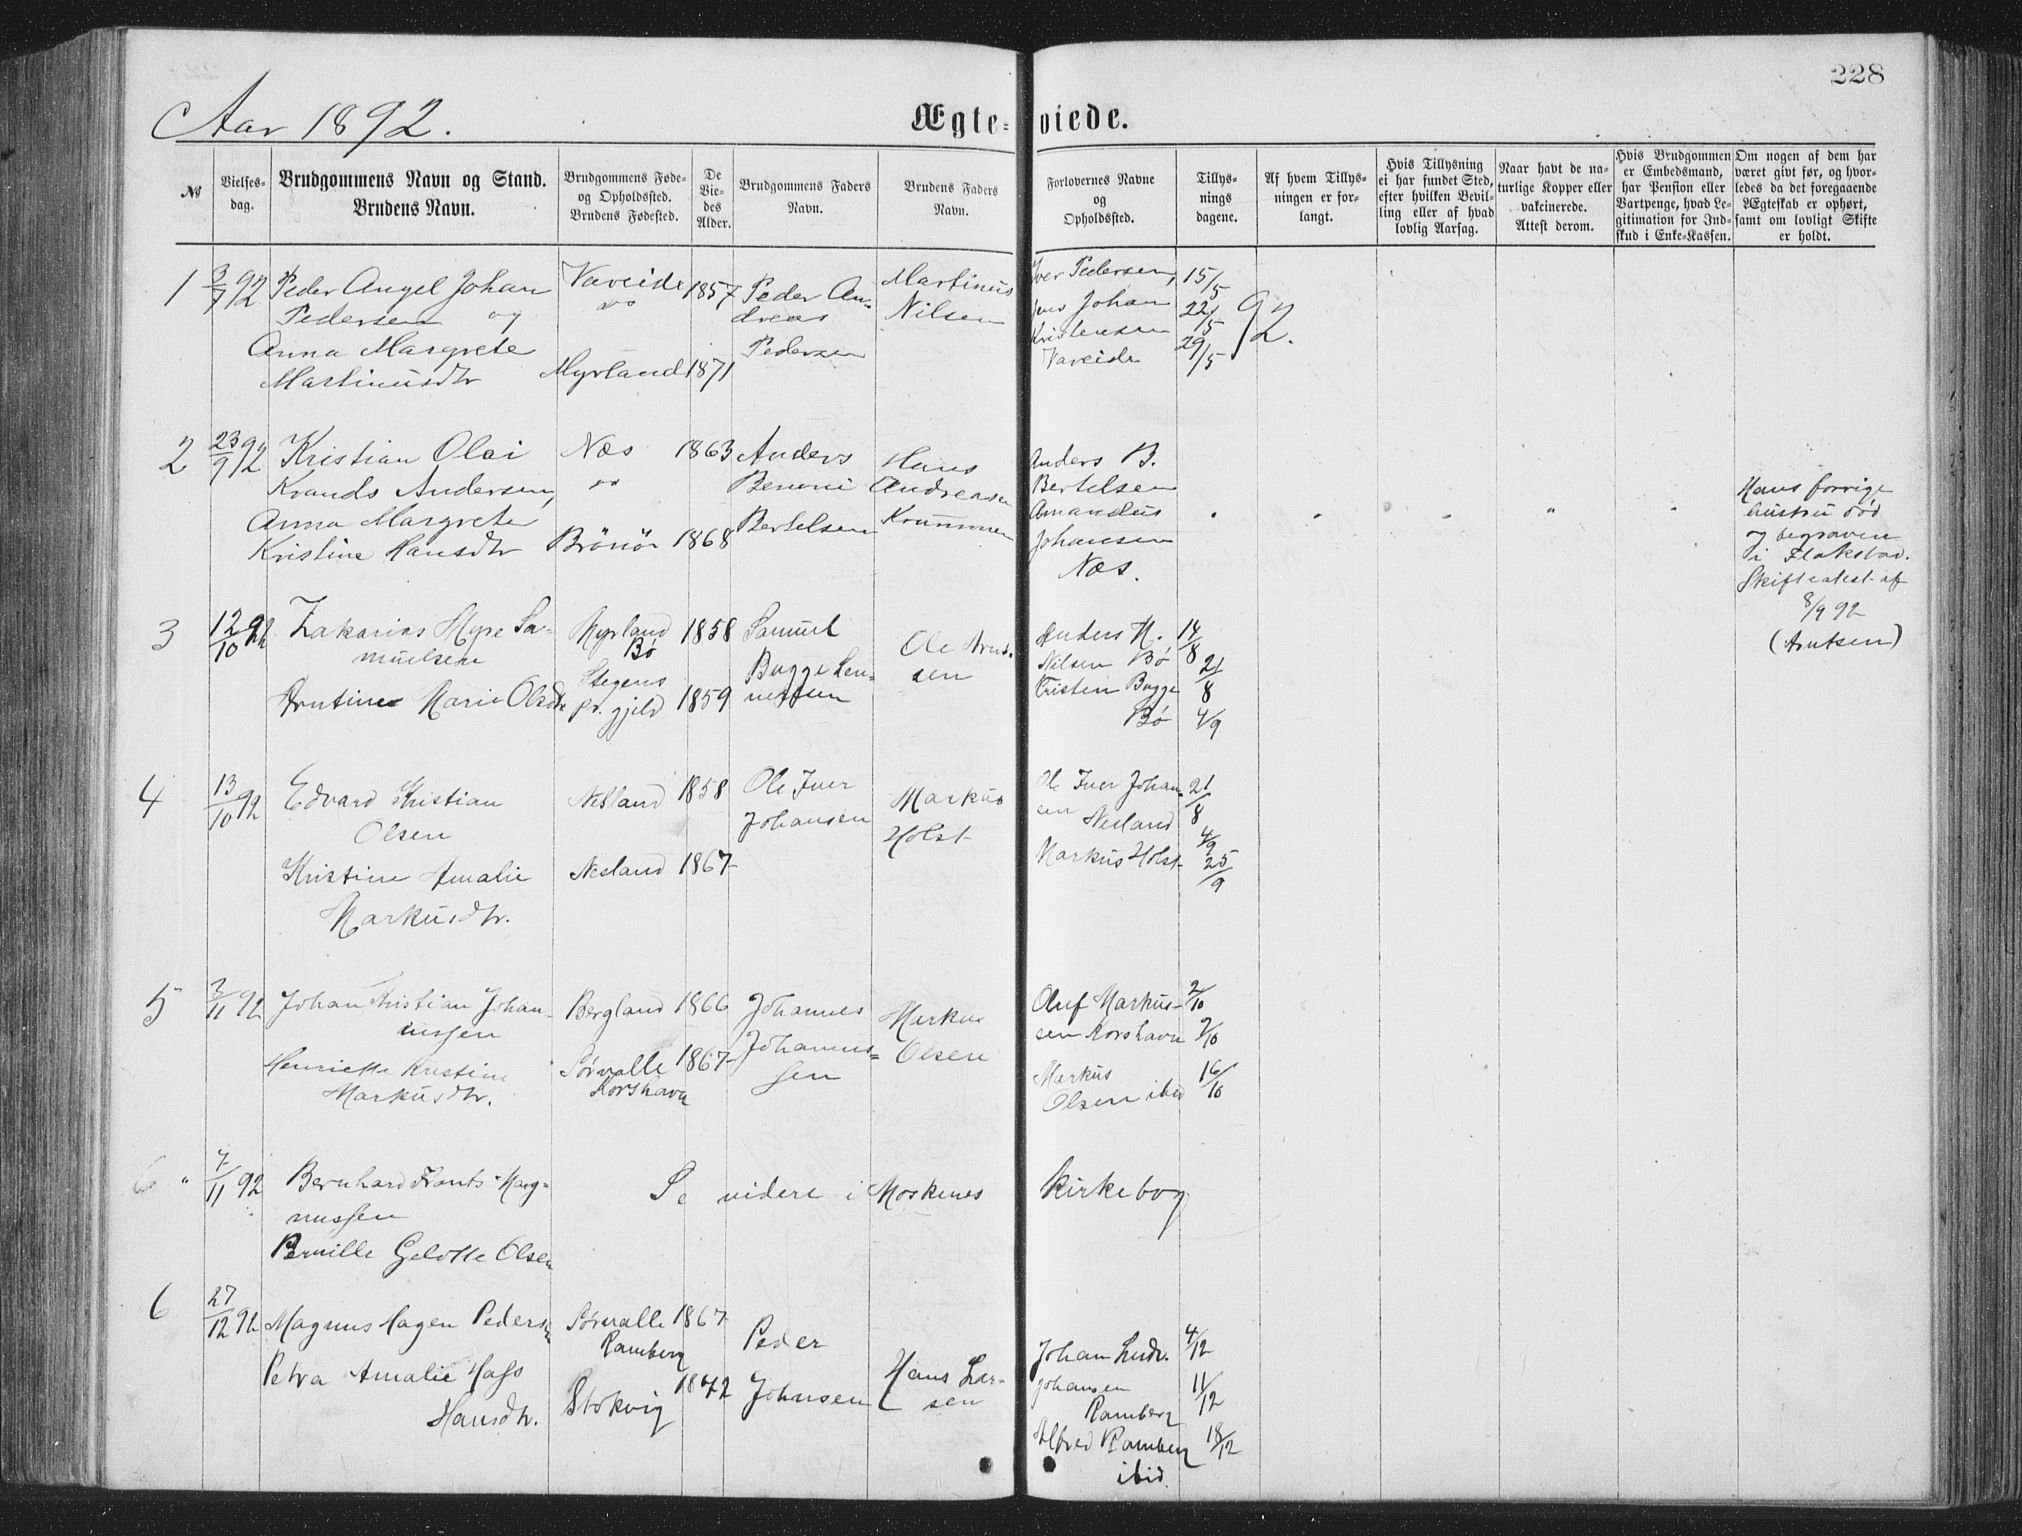 228
Aar 1892.
Ægte-viede.
No
Vielses-
dag.
Brudgommens Navn og Stand.
Brudens Navn.
Brudgommens Føde-
og Opholdssted.
Brudens Fødested.
De
Vie-
des
Alder.
Brudgommens Faders
Navn.
Brudens Faders
Navn.
Forlovernes Navne
og
Opholdssted.
Tillys-
nings
dagene.
Af hvem Tillys-
ningen er for-
langt.
Hvis Tillysning
ei har fundet Sted,
efter hvilken Bevil-
ling eller af hvad
lovlig Aarsag.
Naar havt de na-
turlige Kopper eller
vakcinerede.
Attest derom.
Hvis Brudgommen
er Embedsmand,
har Pension eller
Vartpenge, hvad Le-
gitimation for Ind-
skud i Enke-Kassen.
Om nogen af dem har
været givt før, og hvor-
ledes da det foregaaende
Ægteskab er ophørt,
samt om lovligt Skifte
er holdt.
1
3/7 92
Peder Angel Johan
Pedersen og
Anna Margrete
Martinusdtr
Vareide
"
Myrland
1857
1871
Peder An-
dreas
Pedersen
Martinus
Nilsen
Iver Pedersen,
Jens Johan
Kristensen
Vareide
15/5
22/5
29/5
92.
2
23/9 92
Kristian Olai
Krands Andersen,
Anna Margrete
Kristine Hansdtr
Næs
"
Brönö
1863
1868
Anders
Benoni
Bertelsen
Hans
Andreasen
Anders B.
Bertelsen
Amandus
Johansen
Næs.
Hans forrige
hustru död
og begraven
i Flakstad.
Skifteatest af
8/9 92
(Arntsen)
3
12/10 92
Zakarias Hyse Sa-
muelsen
Arntine Marie Olsdtr
Myrland
Bø
Stegens
pr. gjeld
1858
1859
Samuel
Bugge Len-
nertsen
Ole Arnt-
sen
Anders N.
Nilsen Bø
Kristen Bugge
Bø
14/8
21/8
4/9
4
13/10 92
Edvard Kristian
Olsen
Kristine Amalie
Markusdtr.
Nesland
Nesland
1858
1867
Ole Iver
Johansen
Markus
Holst
Ole Iver Johan-
sen Nesland
Markus Holst
21/8
4/9
25/9
5
3/11 92
Johan Kristian Johan-
nssen
Henriette Kristine
Markusdtr.
Bergland
Sørvalle
Korshavn
1866
1867
Johannes
Johannes-
sen
Markus
Olsen
Oluf Markus-
sen Korshavn
Markus
Olsen ibid
2/10
9/10
16/10
6 "
7/11 92
Bernhard Frants Mag-
nussen
Pernille Gelotte Olsen
Se videre i Moskenes Kirkebog
6
27/12 92
Magnus Hagen Pedersen
Petra Amalie Hass
Hansdtr.
Sørvalle
Ramberg
Stokvig
1867
1872
Peder
Johnsen
Hans Lar-
sen
Johan Ludv.
Johansen
Ramberg
Alfred Ramberg
ibid.
4/12
11/12
18/12